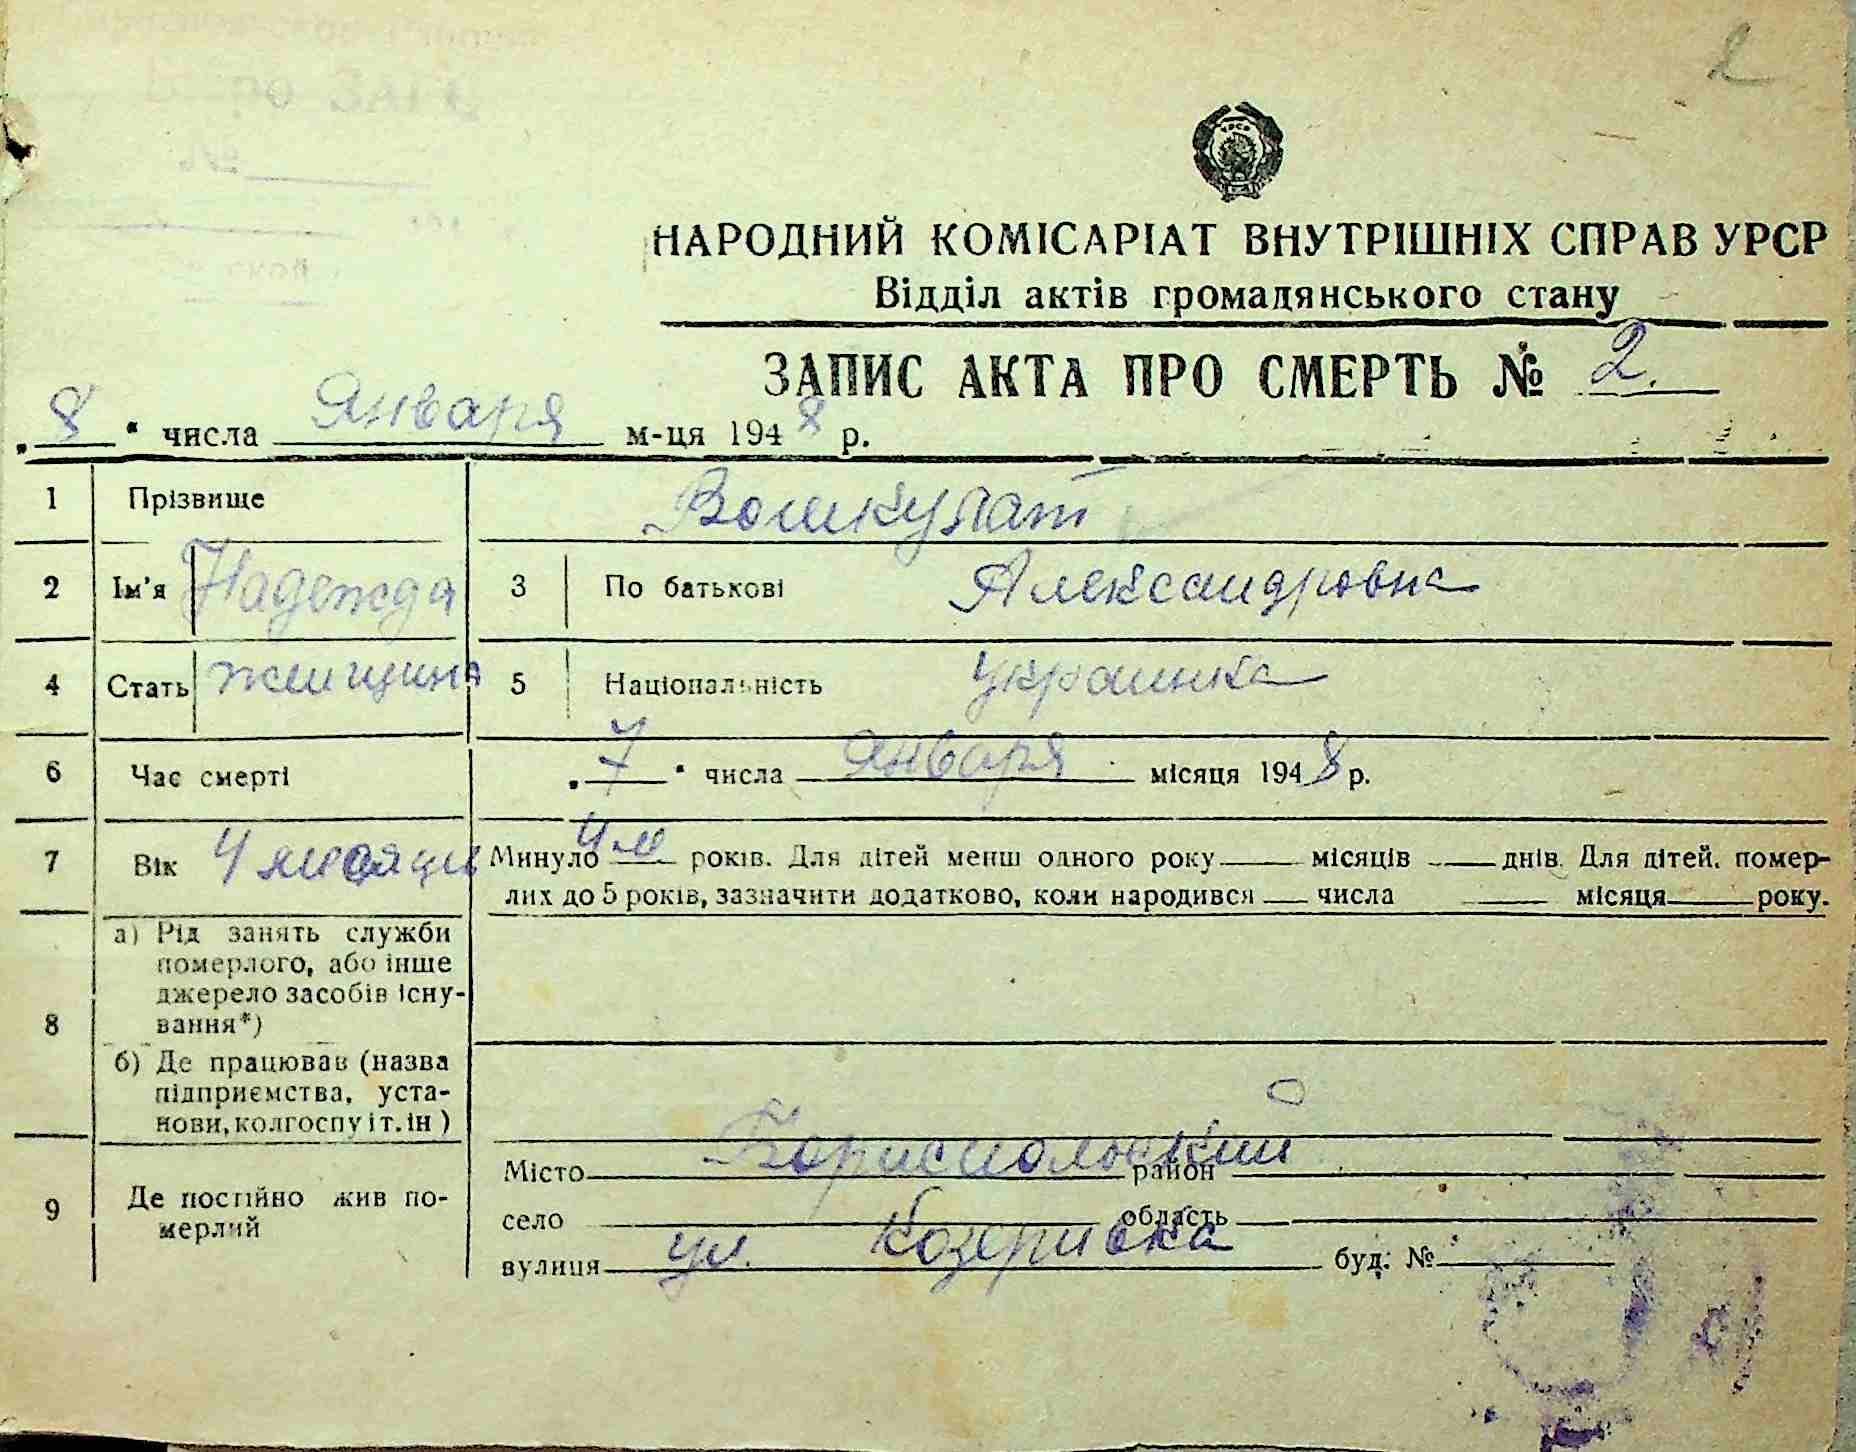 2
НАРОДНИЙ КОМІСАРІАТ ВНУТРІШНІХ СПРАВ УРСР
Відділ актів громадянського стану
ЗАПИС АКТА ПРО СМЕРТЬ № 2.
„8“ числа Января м-ця 1948 р.
1 Прізвище Вошкулат
2 Ім'я Надежда 3 По батькові Александровна
4 Стать женщина 5 Національність украинка
6 Час смерті „7“ числа Января місяця 1948 р.
7 Вік 4 месяцы Минуло 4 м років. Для дітей менш одного року місяців днів. Для дітей, помер-
лих до 5 років, зазначити додатково, коли народився числа місяця року.
8 а) Рід занять служби
померлого, або інше
джерело засобів існу-
вання*)
б) Де працював (назва
підприємства, уста-
нови, колгоспу і т. ін)
9 Де постійно жив по-
мерлий
Місто Бориспольский район
село область
вулиця ул. буд. №